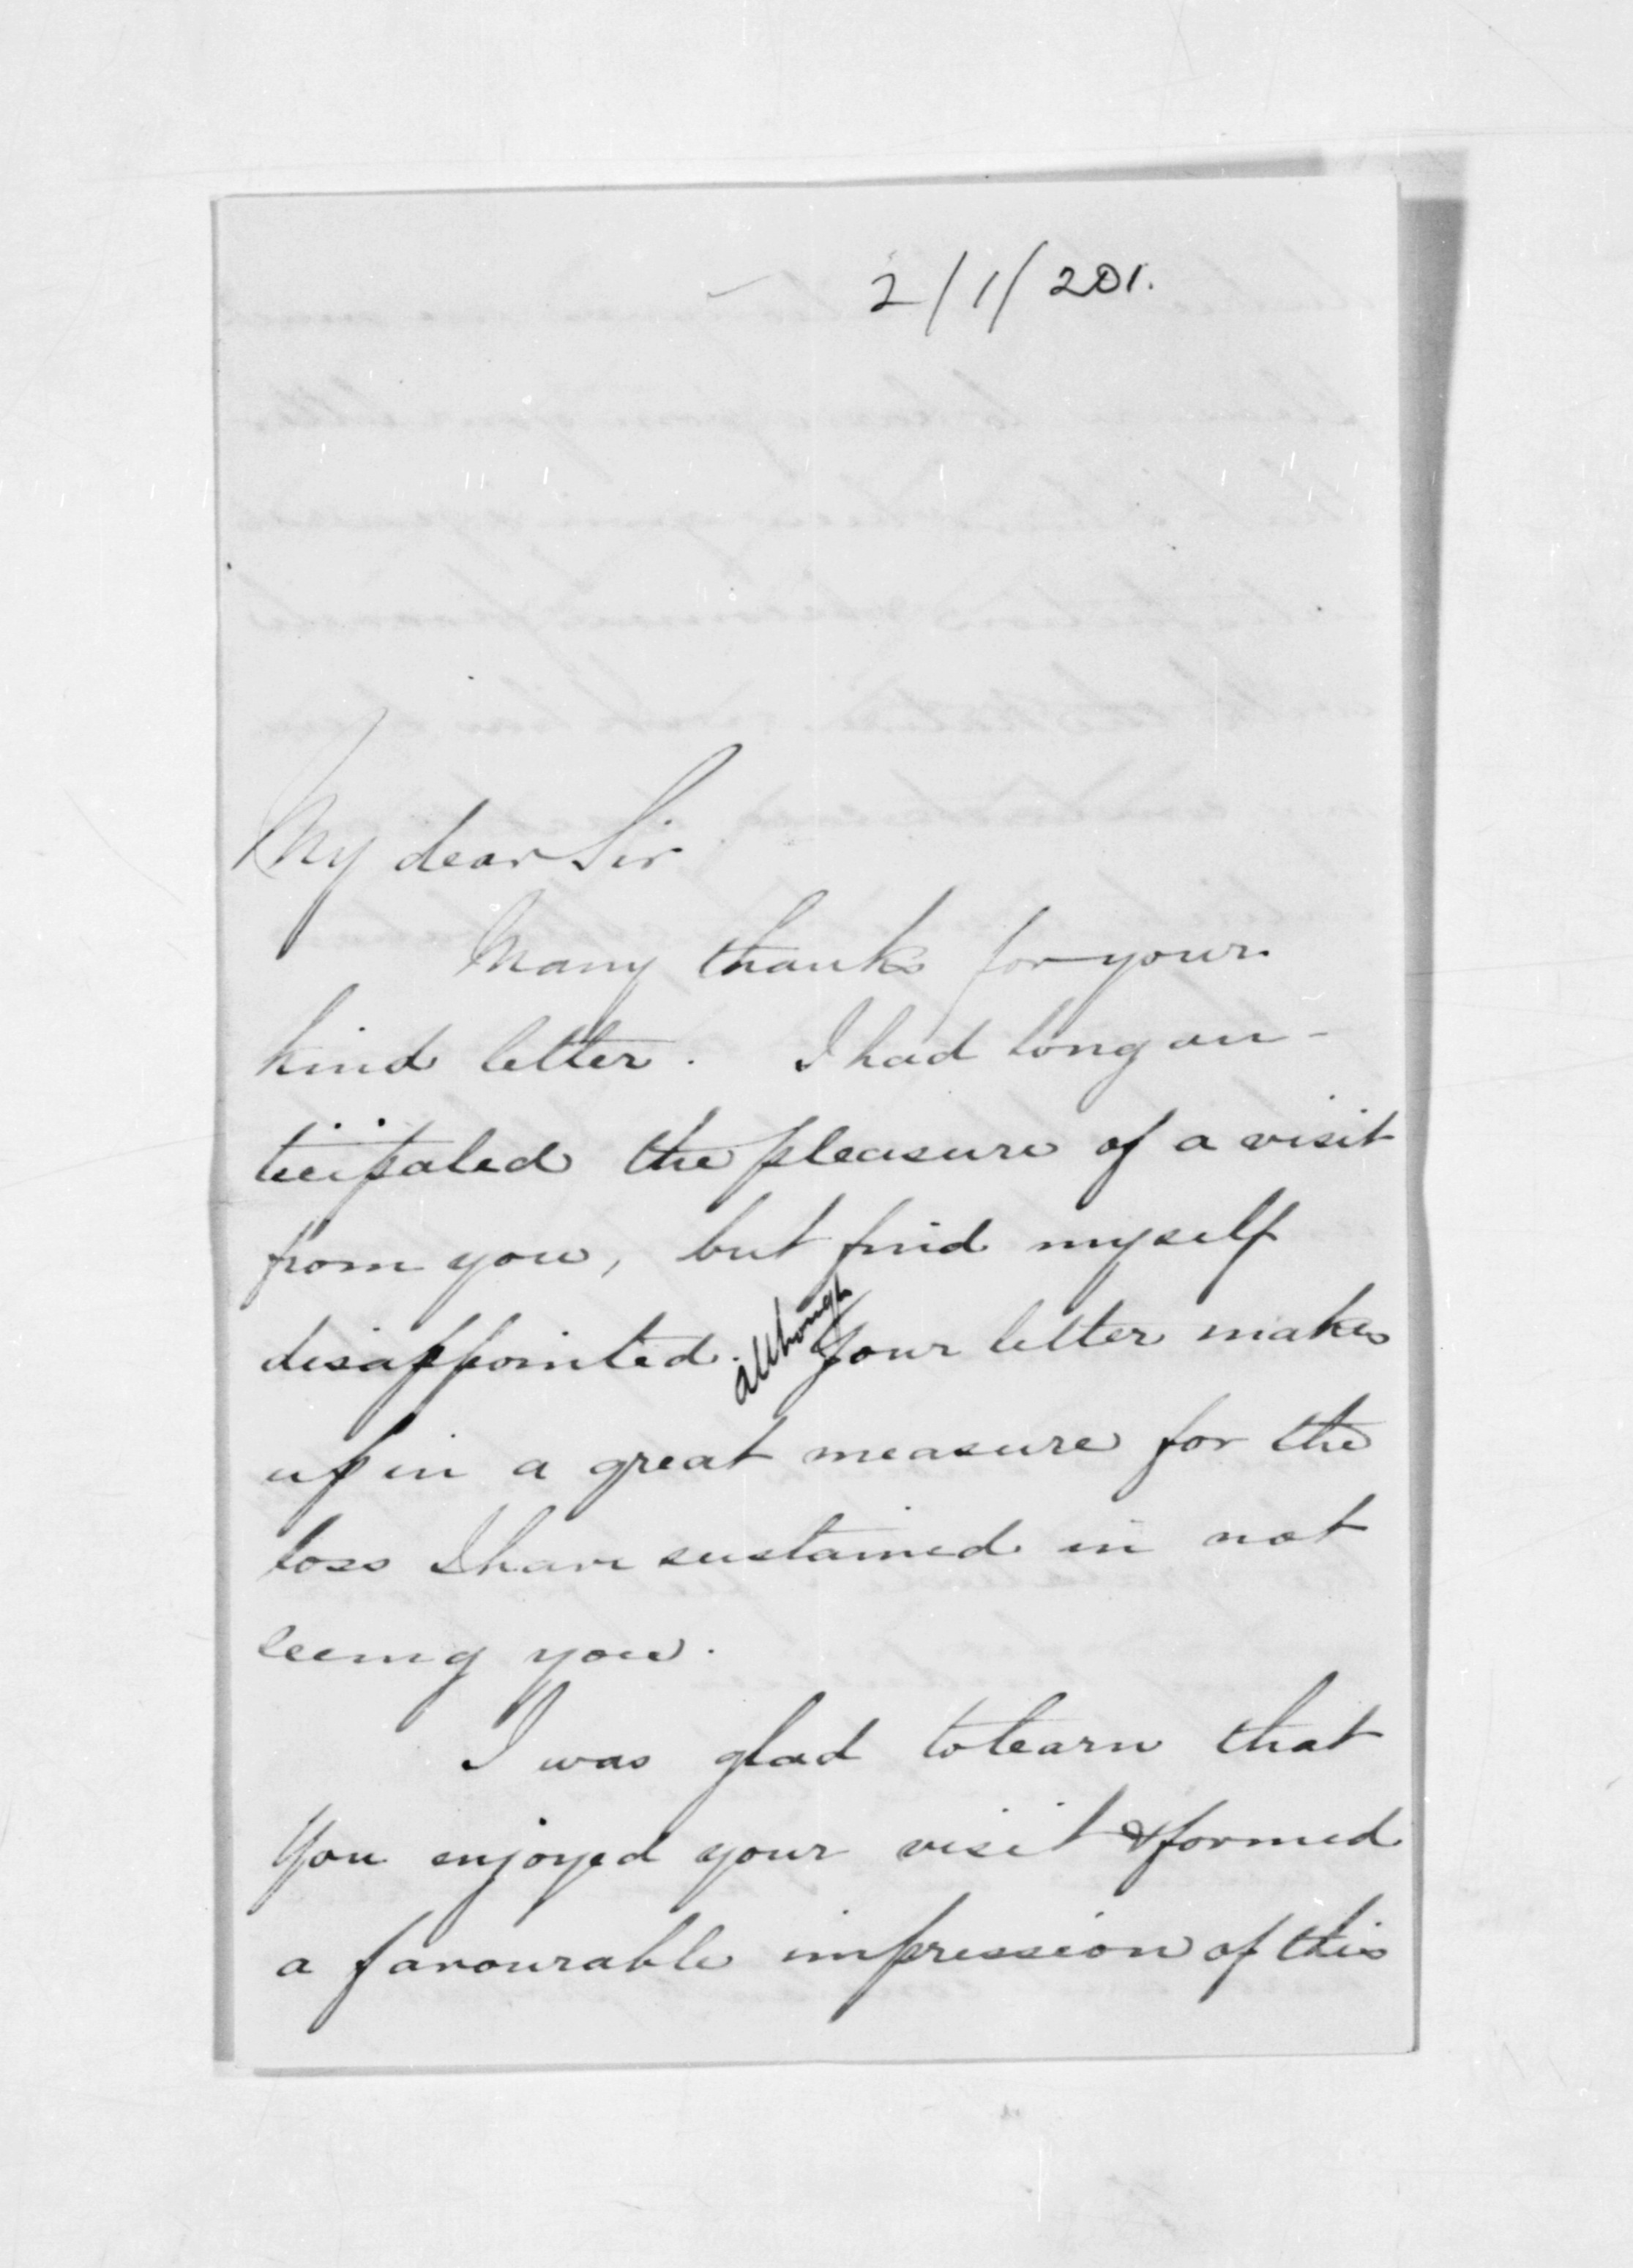 2/1/201.
My dear Sir
Many thanks for your
kind letter. I had long an-
ticipated the pleasure of a visit
from you, but find myself
disappointed. although your letter makes
up in a great measure for the
loss I have sustained in not
seeing you.
I was glad to learn that
you enjoyed your visit & formed
a favourable impression of this